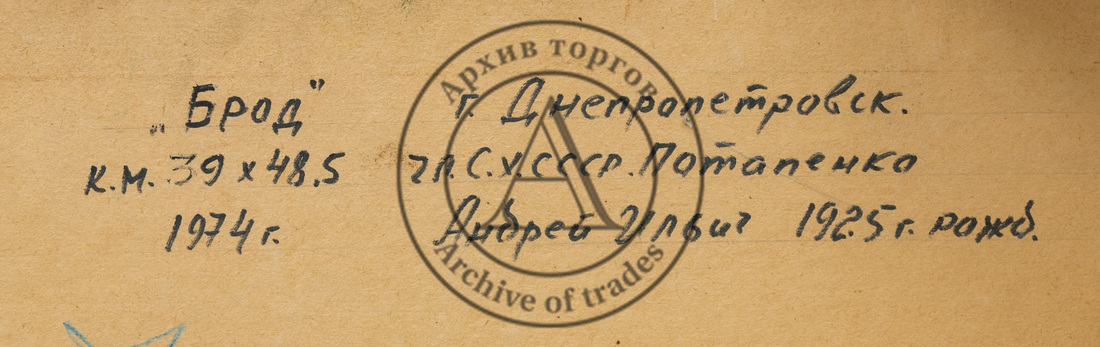 „Брод" г. Днепропетровск.
к.м. 39 х 48,5 чл.С.х.СССР. Потапенко
1974 г. Андрей Ильич 1925 г. рожд.
Архив торгов
Archive of trades